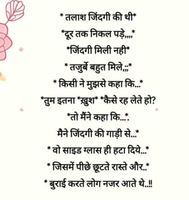 * तलाश जिंदगी की थी*
*दूर तक निकल पड़े,,,,*
*जिंदगी मिली नही*
* तजुर्बे बहुत मिले,,,*
* किसी ने मुझसे कहा कि...*
*तुम इतना *ख़ुश* *कैसे रह लेते हो?
*तो मैंने कहा कि...*.
मैने जिंदगी की गाड़ी से...*
* वो साइड ग्लास ही हटा दिये...*
* जिसमें पीछे छूटते रास्ते और..*
* बुराई करते लोग नजर आते थे..!!